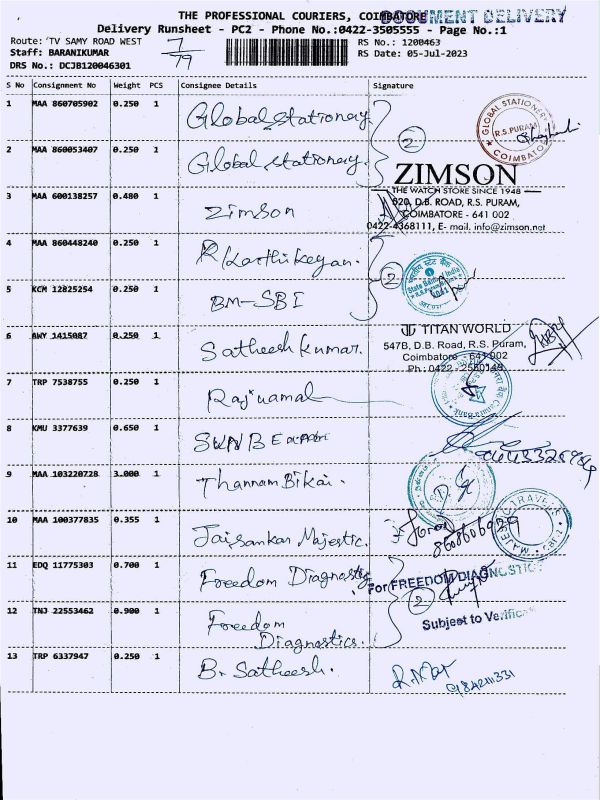 THE PROFESSIONAL COURIERS, COIMBATORE
DOCUMENT DELIVERY
Delivery Runsheet - PC2 - Phone No.:0422-3505555 - Page No.:1
Route: TV SAMY ROAD WEST
Staff: BARANIKUMAR
DRS No.: DCJB120046301
7/79
RS No.: 1200463
RS Date: 05-Jul-2023
S No Consignment No Weight PCS Consignee Details Signature
1 MAA 860705902 0.250 1 Global stationery
GLOBAL STATIONERY R.S.PURAM COIMBATORE
2
2 MAA 860053407 0.250 1 Global stationery.
3 MAA 600138257 0.480 1 Zimson
ZIMSON
THE WATCH STORE SINCE 1948
520, D.B. ROAD, R.S. PURAM,
COIMBATORE - 641 002
0422-4368111, E- mail. info@zimson.net
4 MAA 860448240 0.250 1 R Karthikeyan.
2
State Bank of India
5 KCM 12825254 0.250 1 BM-SBI
6 BWY 1415087 0.250 1 Satheesh kumar.
TITAN WORLD
547B, D.B. Road, R.S. Puram,
Coimbatore - 641 002
Ph : 0422 - 2550145
7 TRP 7538755 0.250 1 Rajnamal
Canara Bank
8 KMU 3377639 0.650 1
9 MAA 103220728 3.000 1 Thannambikai.
10 MAA 100377835 0.355 1 Jaisankar Majestic.
MAJESTIC TRAVELS
11 EDQ 11775303 0.700 1 Freedom Diagnostics
For FREEDOM DIAGNOSTICS
2
12 TNJ 22553462 0.900 1 Freedom
Diagnostics.
Subject to Verification
13 TRP 6337947 0.250 1 B. Satheesh.